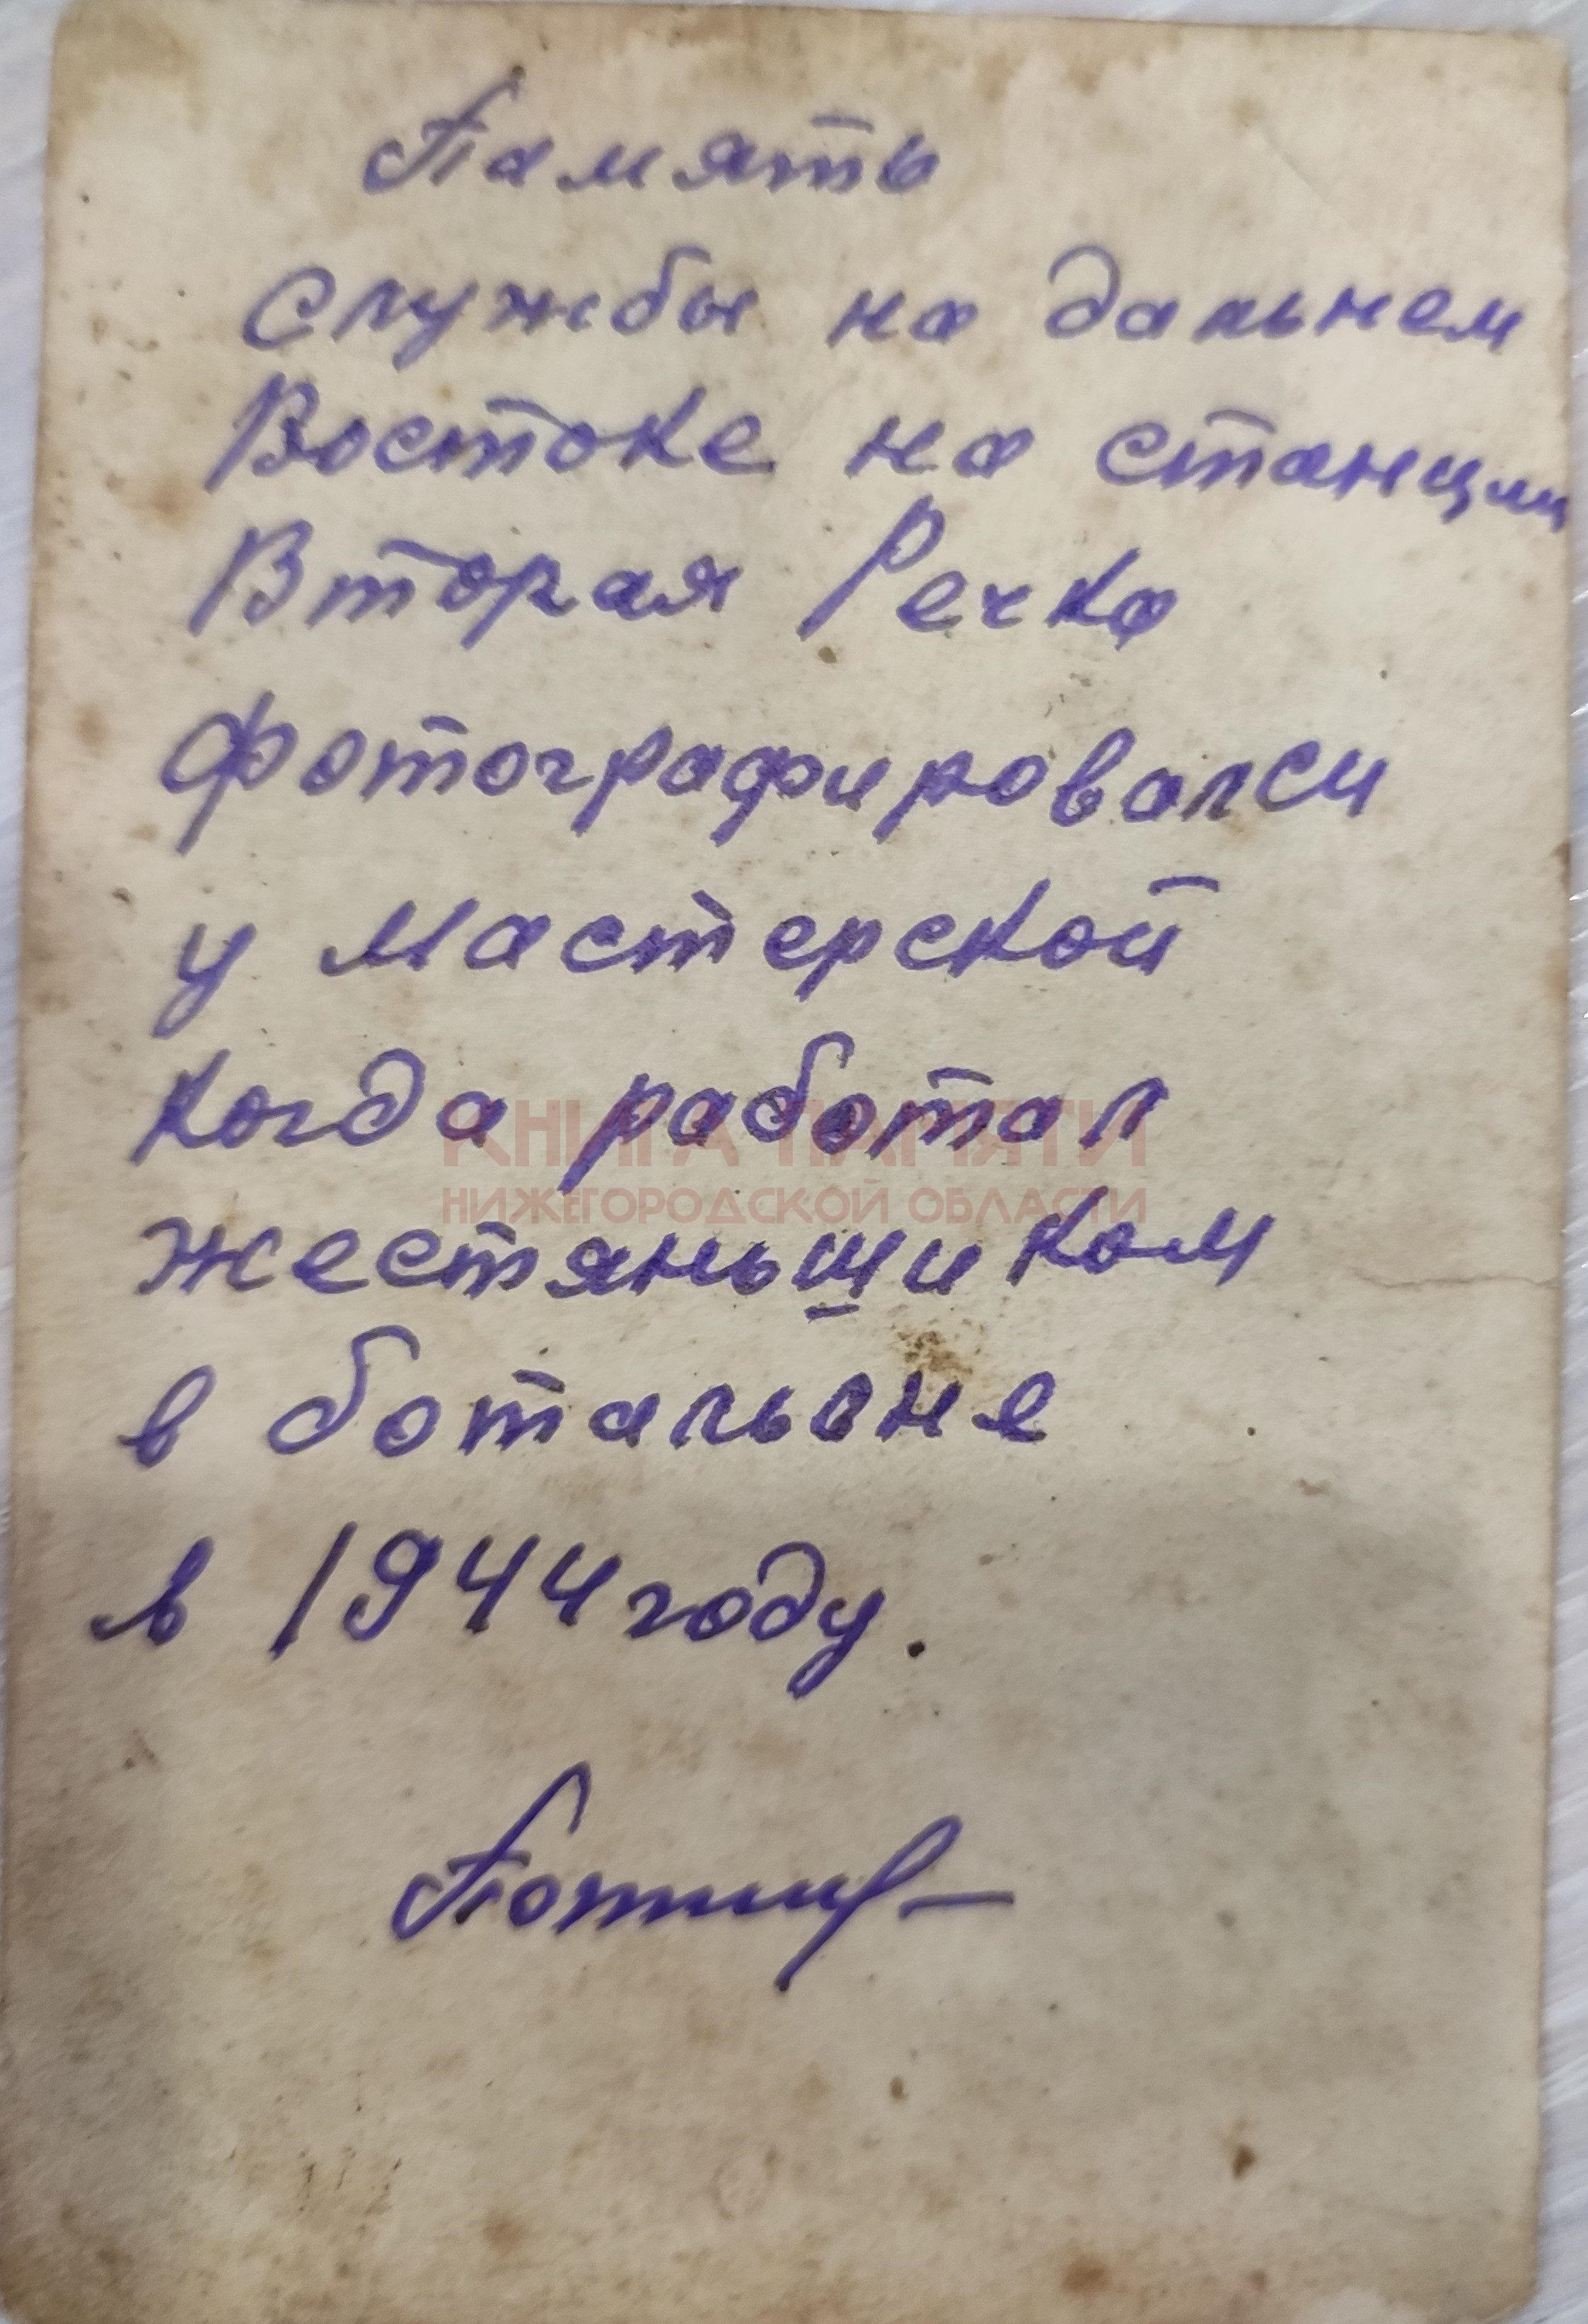 Память
службы на дальнем
Востоке на станции
Вторая Речка
фотографировалси
у мастерской
когда работал
КНИГА ПАМЯТИ
НИЖЕГОРОДСКОЙ ОБЛАСТИ
жестяньщиком
в ботальоне
в 1944 году.